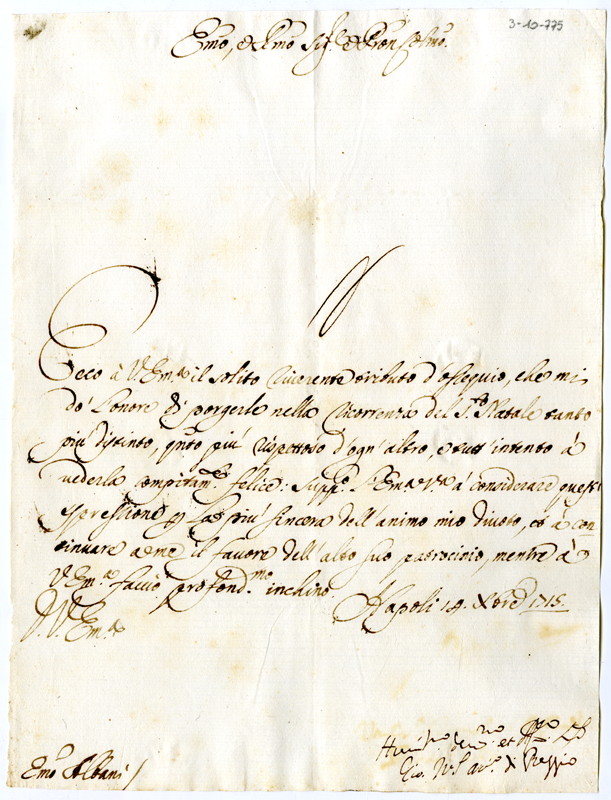 3-10-775
Emo, e Rmo Sig.r e Pron Colmo.
Ecco à V. Em.a il solito riverente tributo d'ossequio, che mi
dò l'onore di porgerle nella ricorrenza del S.to Natale tanto
più distinto, q.nto più rispettoso d'ogn'altro, e tutt'intento à
vederla compitam.te felice: supp.o l'Em.a V.a à considerare quest'
espressione p la più sincera dell'animo mio divoto, et à con
tinuare a me il favore dell'alto suo patrocinio, mentre à
V. Em.a faccio profond.mo inchino. Napoli 14. Xbre 1715.
D. V. Em.a
Humil.mo Dev.mo et
Gio. arc.o di Reggio
Emo Albani /